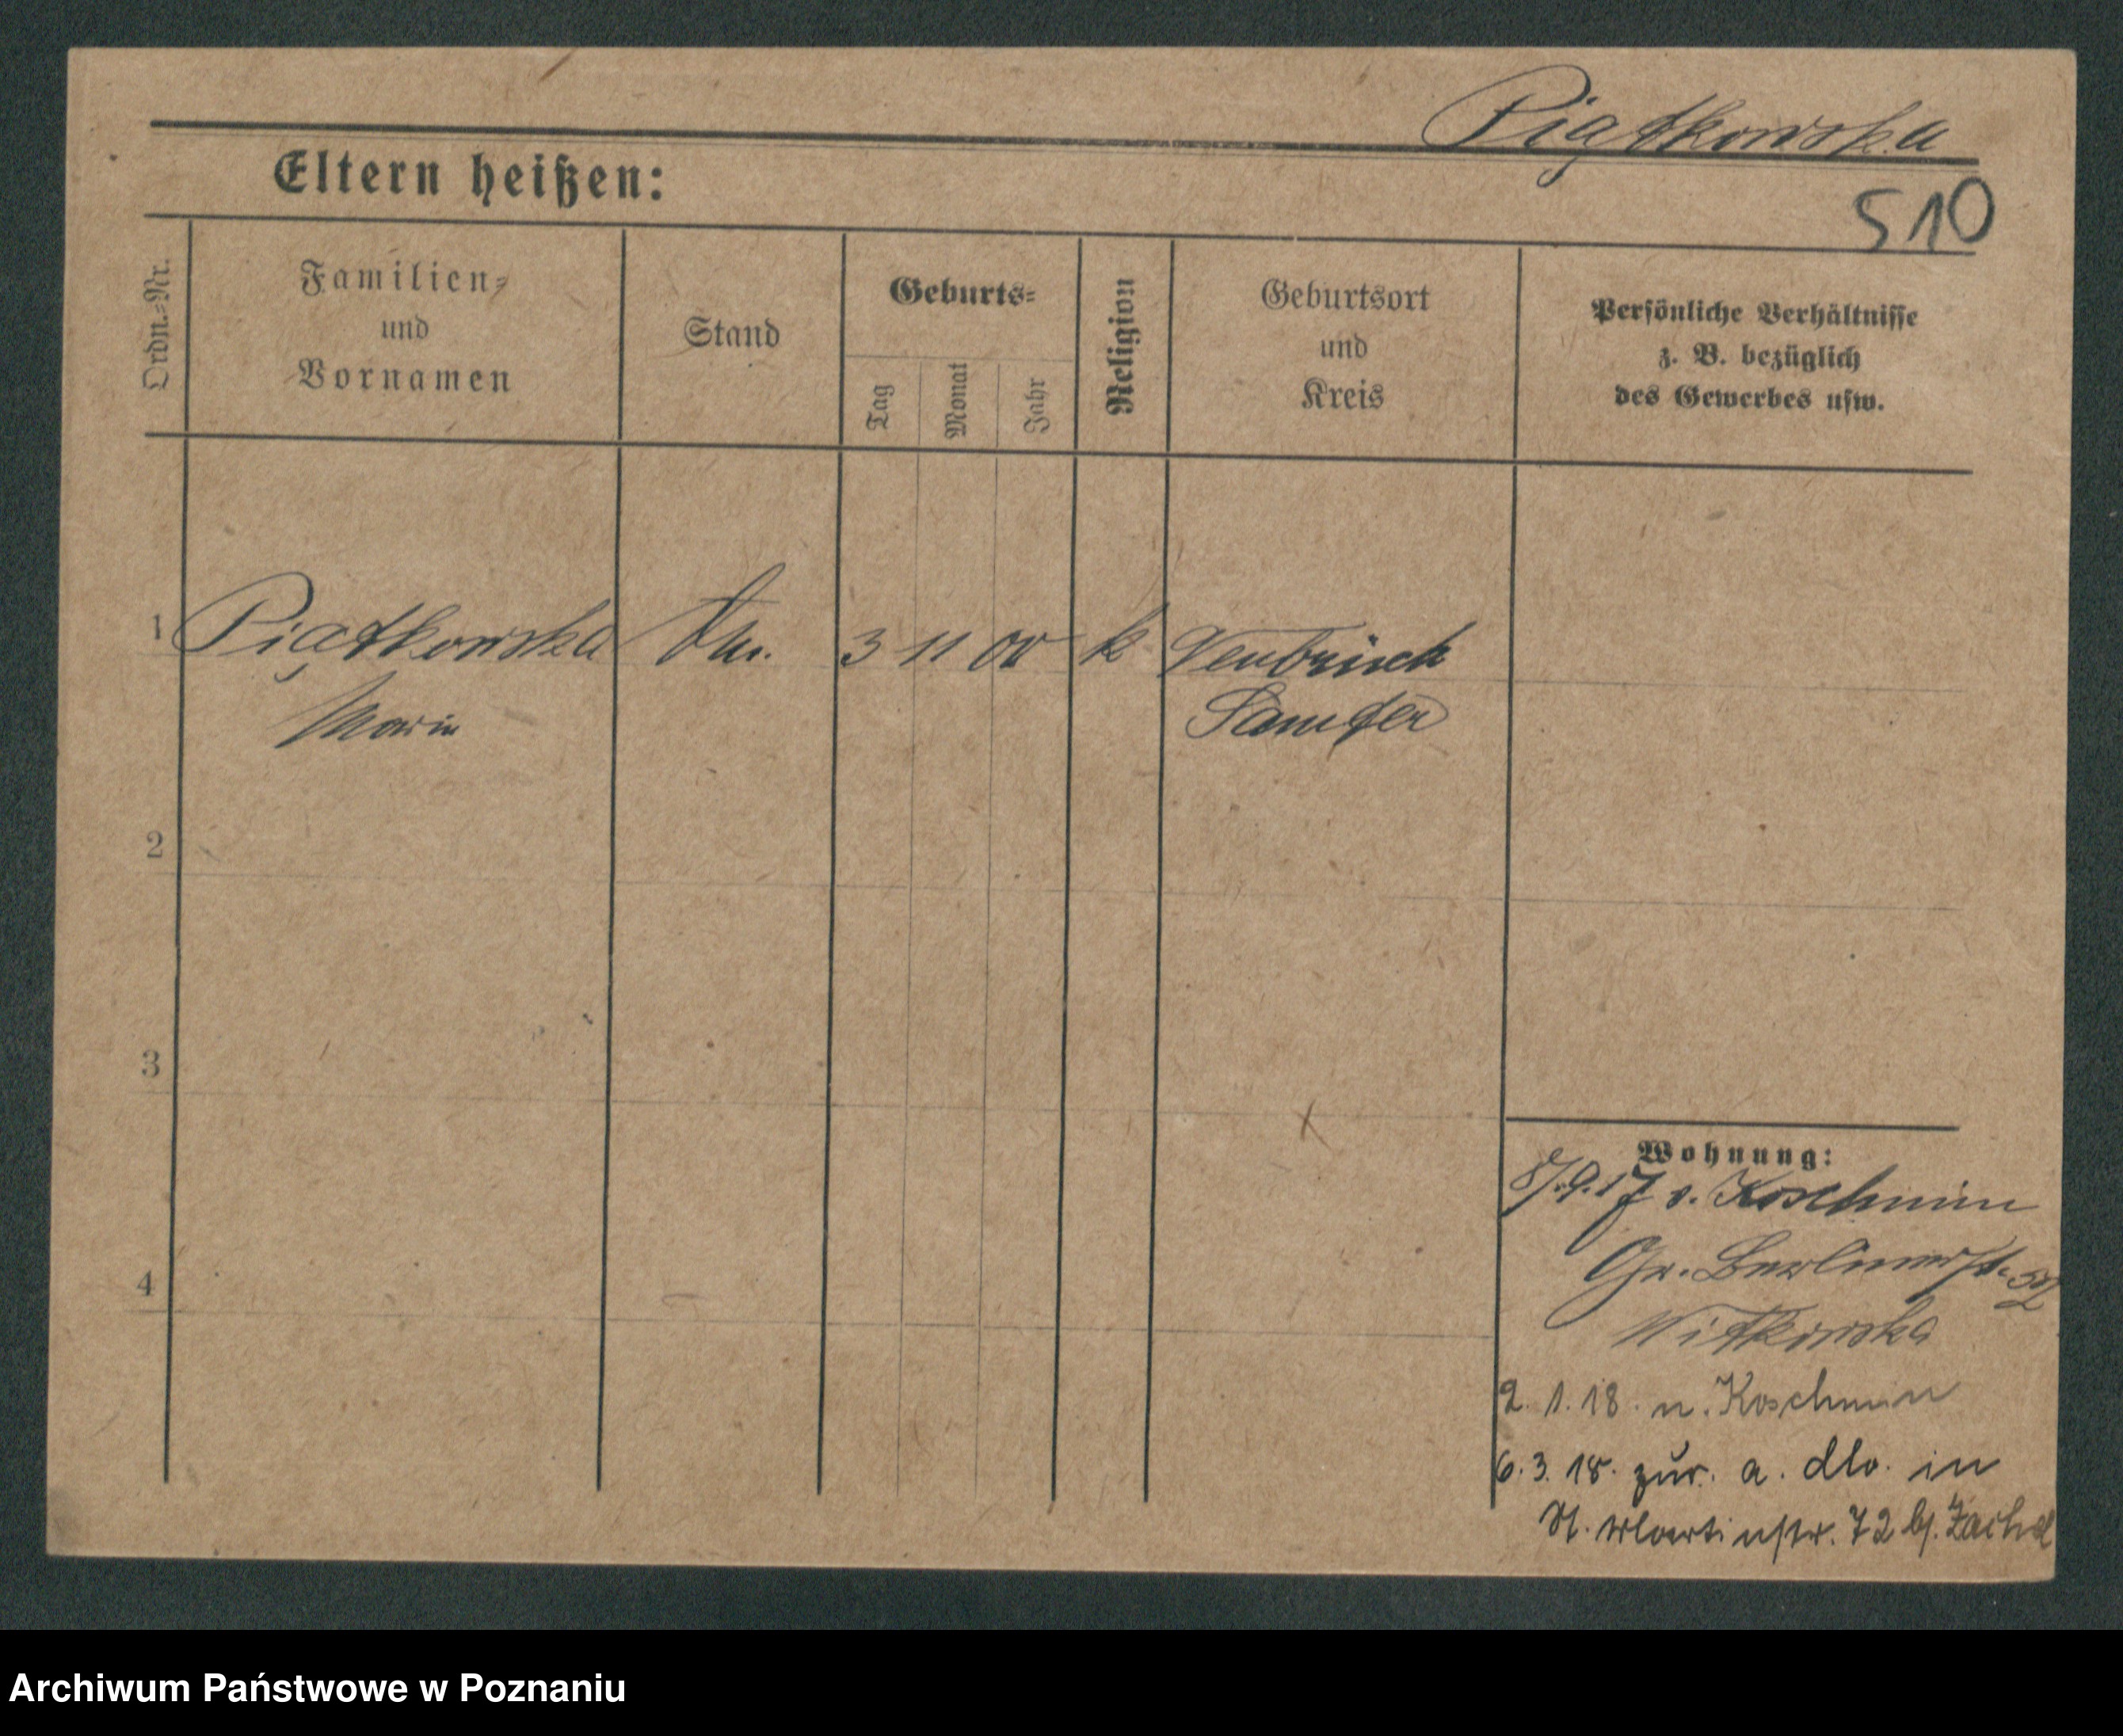 Piątkowska
Eltern heißen:
510
Ordn.-Nr.
Familien-
und
Vornamen
Stand
Geburts-
Tag
Monat
Jahr
Religion
Geburtsort
und
Kreis
Persönliche Verhältnisse
z. B. bezüglich
des Gewerbes usw.
1 Piątkowska 3 11 00 k Neubrück
Marie Samter
2
3
4
Wohnung:
8/9.17 v. Koschmin
Gr. Berlinerst.
Witkowska
2. 1. 18. n. Koschmin
6. 3. 18. zur. a. dto. in
St. Martinstr. 72 bj.
Archiwum Państwowe w Poznaniu